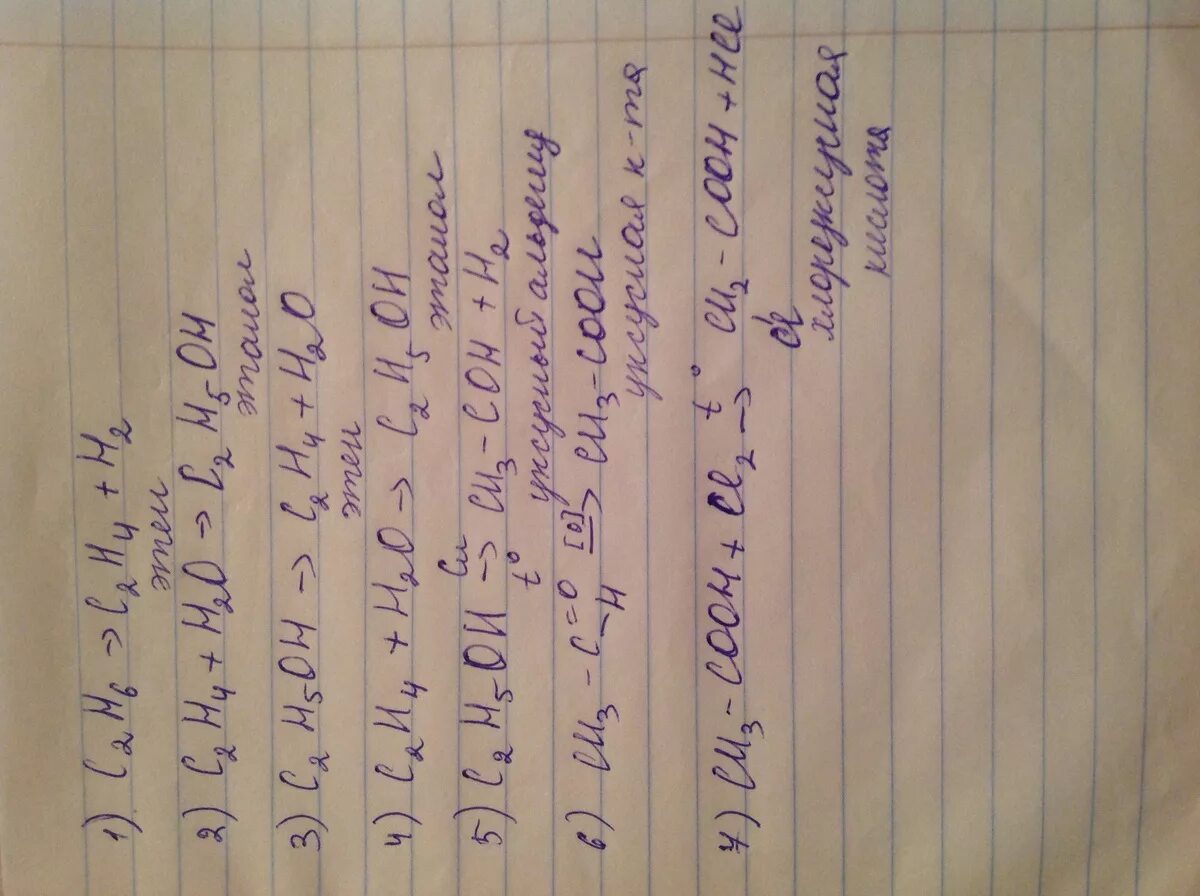 1) C₂H₆ → C₂H₄ + H₂
этен
2) C₂H₄ + H₂O → C₂H₅OH
этанол
3) C₂H₅OH → C₂H₄ + H₂O
этен
4) C₂H₄ + H₂O → C₂H₅OH
этанол
5) C₂H₅OH Cu → t° CH₃ - COH + H₂
уксусный альдегид
6) CH₃ - C = O - H [O] → CH₃ - COOH
уксусная к-та
7) CH₃ - COOH + Cl₂ → t° CH₂ - COOH + HCl
Cl
хлоруксусная
кислота